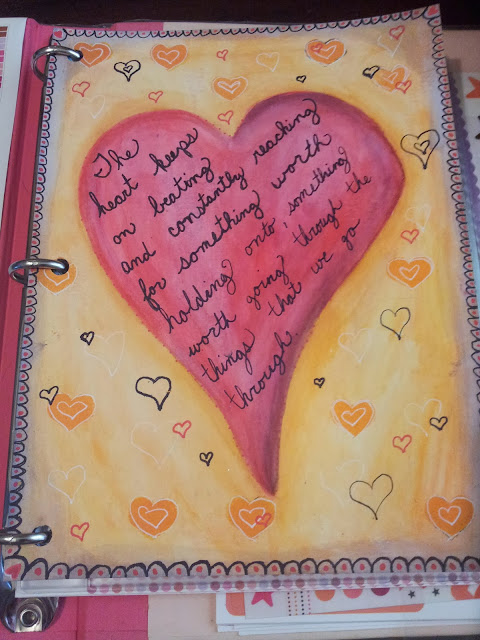 The
heart keeps
on beating
and constantly reaching
for something worth
holding onto, something
worth going through the
things that we go
through.